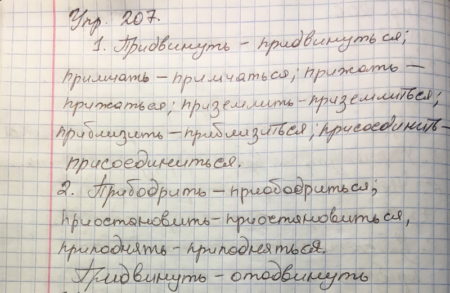 Упр. 207.
1. Придвинуть – придвинуться;
примчать – примчаться; прижать –
прижаться; приземлить – приземлиться;
приблизить – приблизиться; присоединить –
присоединиться.
2. Прибодрить – приободриться;
приостановить – приостановиться,
приподнять – приподняться.
Придвинуть – отодвинуть